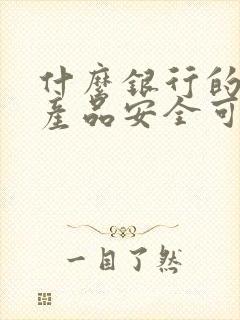 什麽銀行的
産品安全可
一目了然